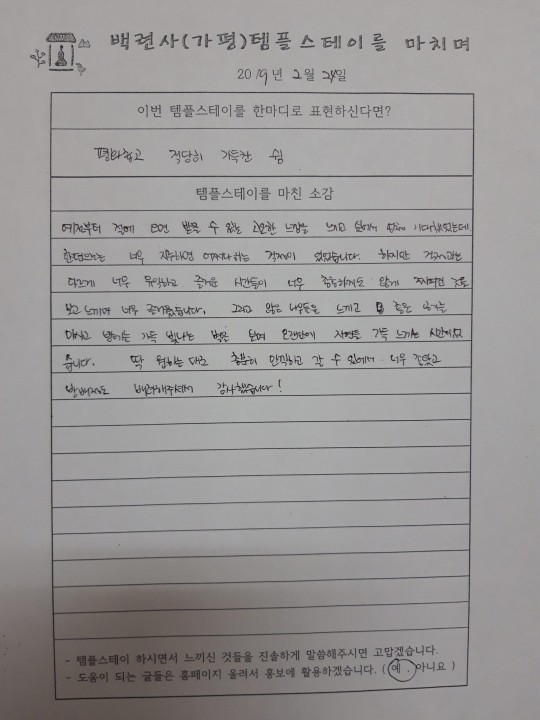 백련사(가평)템플스테이를 마치며
2019년 2월 24일
이번 템플스테이를 한마디로 표현하신다면?
평화롭고 적당히 가득찬 쉼
템플스테이를 마친 소감
예전부터 절에 오면 받을 수 있는 고요한 느낌을 느끼고 싶어서 기대했었는데
한편으로는 너무 지루하면 어쩌나하는 걱정이 있었습니다. 하지만 걱정과는
다르게 너무 유익하고 즐거운 시간들이 너무 촘촘하지도 않게 짜여진 것을
보고 느끼며 너무 즐거웠습니다. 그리고 많은 여유들을 느끼고 좋은 공기를
마시고 밤에는 가득 빛나는 별을 보며 오랜만에 자연을 가득 느끼는 시간이었
습니다. 딱 원하는 대로 충분히 만끽하고 갈 수 있어서 너무 좋았고
배려해주셔서 감사했습니다!
- 템플스테이 하시면서 느끼신 것들을 진솔하게 말씀해주시면 고맙겠습니다.
- 도움이 되는 글들은 홈페이지 올려서 홍보에 활용하겠습니다. ( 예 . 아니요 )